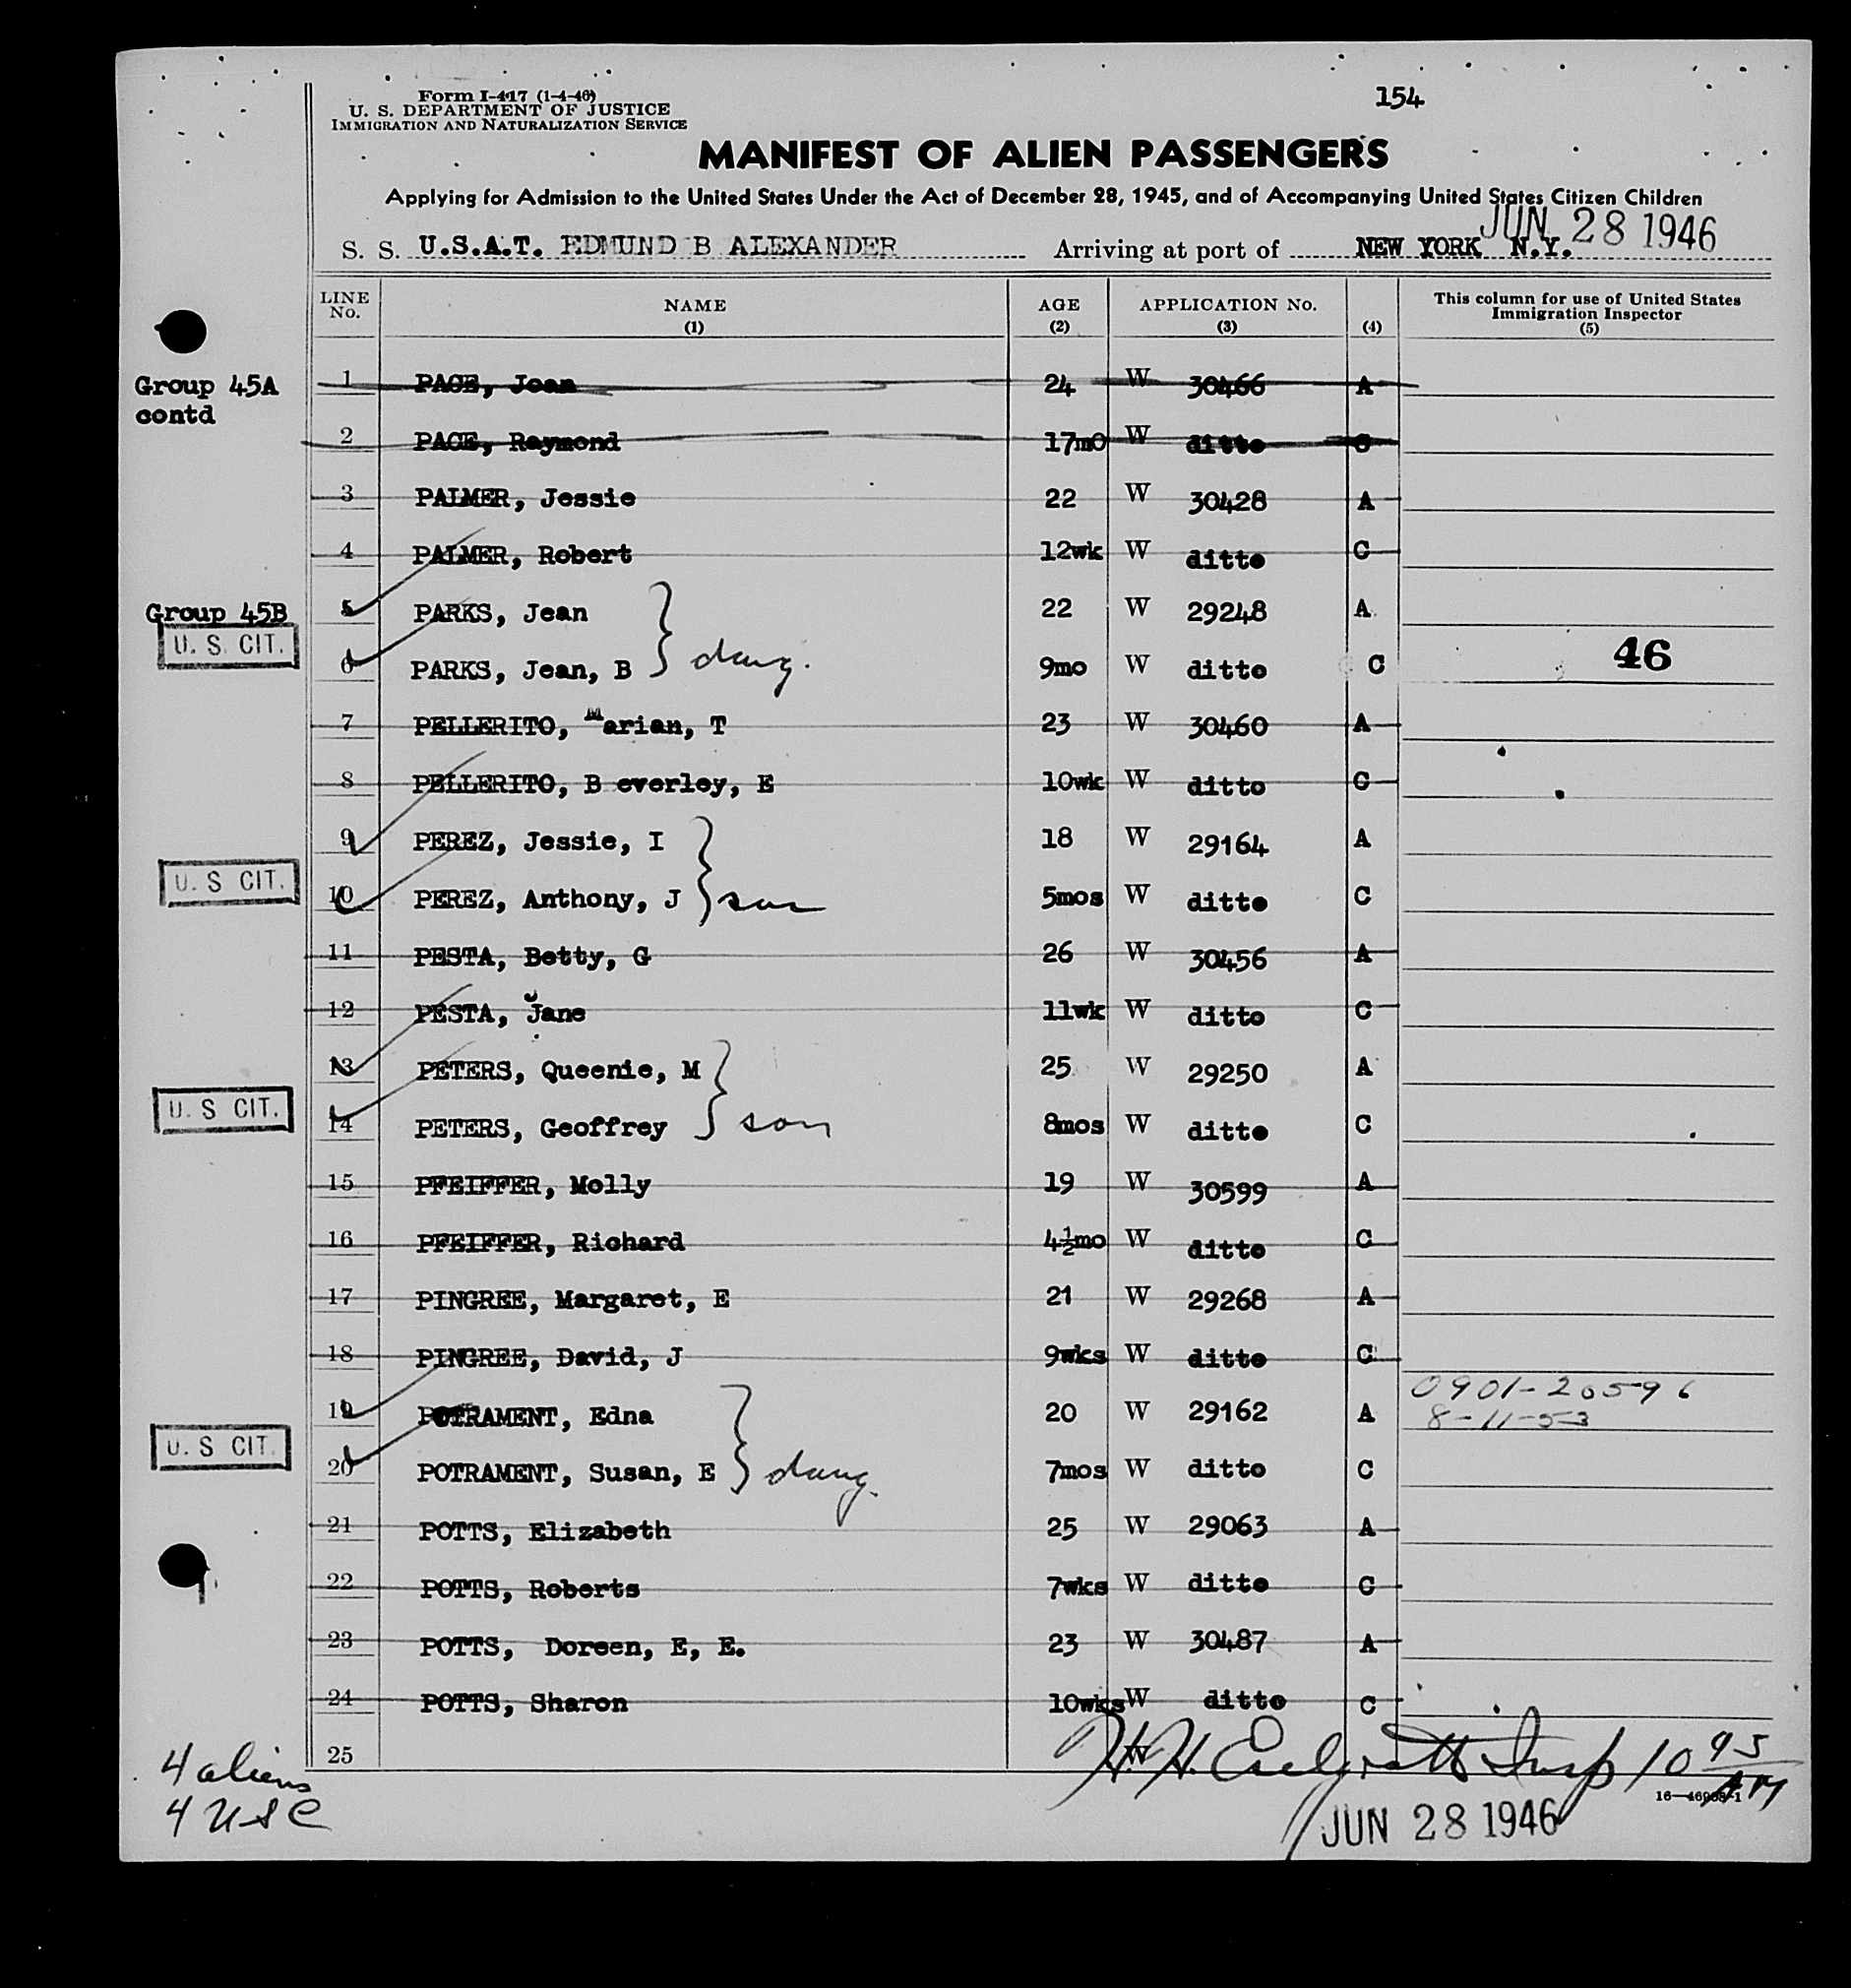 Form I-417 (1-4-46)
U. S. DEPARTMENT OF JUSTICE
IMMIGRATION AND NATURALIZATION SERVICE
154
MANIFEST OF ALIEN PASSENGERS
Applying for Admission to the United States Under the Act of December 28, 1945, and of Accompanying United States Citizen Children
JUN 28 1946
S. S. U.S.A.T. EDMUND B ALEXANDER Arriving at port of NEW YORK N.Y.
LINE No. NAME (1) AGE (2) APPLICATION No. (3) (4) This column for use of United States Immigration Inspector (5)
Group 45A contd
1 PACE, Joan 24 W 30466 A
2 PACE, Raymond 17mo W ditto C
3 PALMER, Jessie 22 W 30428 A
4 PALMER, Robert 12wk W ditto C
Group 45B 5 PARKS, Jean 22 W 29248 A
U. S. CIT. 6 PARKS, Jean, B daug. 9mo W ditto C 46
7 PELLERITO, Marian, T 23 W 30460 A
8 PELLERITO, B everley, E 10wk W ditto C
9 PEREZ, Jessie, I 18 W 29164 A
U. S CIT. 10 PEREZ, Anthony, J son 5mos W ditto C
11 PESTA, Betty, G 26 W 30456 A
12 PESTA, Jane 11wk W ditto C
13 PETERS, Queenie, M 25 W 29250 A
U. S CIT. 14 PETERS, Geoffrey son 8mos W ditto C
15 PFEIFFER, Molly 19 W 30599 A
16 PFEIFFER, Richard 4½mo W ditto C
17 PINGREE, Margaret, E 21 W 29268 A
18 PINGREE, David, J 9wks W ditto C
19 POTRAMENT, Edna 20 W 29162 A 0901-20596 8-11-53
U. S CIT. 20 POTRAMENT, Susan, E daug. 7mos W ditto C
21 POTTS, Elizabeth 25 W 29063 A
22 POTTS, Roberts 7wks W ditto C
23 POTTS, Doreen, E, E. 23 W 30487 A
24 POTTS, Sharon 10wks W ditto C
25 W H. H. Insp 10 45 AM
4 aliens
4 USC
JUN 28 1946